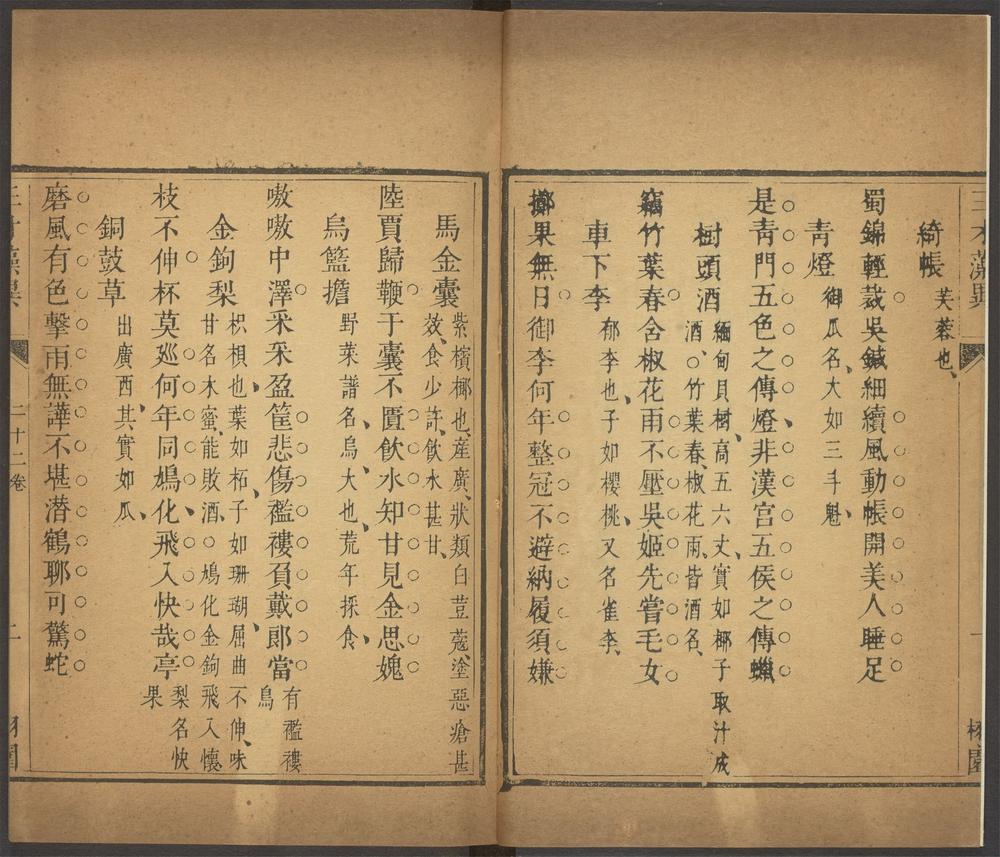 綺帳 芙蓉也
蜀錦輕裁吳鍼細續風動帳開美人睡足
青燈 御瓜名大如三斗魁
是青門五色之傳燈非漢宮五侯之傳蠟
樹頭酒 緬甸貝樹高五六丈實如椰子取汁成
酒○竹葉春椒花雨皆酒名
竊竹葉春含椒花雨不壓吳姬先嘗毛女
車下李 郁李也子如櫻桃又名雀李
擲果無日御李何年整冠不避納履須嫌
馬金囊 紫檳榔也產廣狀類白荳蔻塗惡瘡甚
效食少許飲水甚甘
陸賈歸鞭于囊不匱飲水知甘見金思媿
烏籃擔 野菜譜名烏大也荒年採食
嗷嗷中澤采采盈筐悲傷襤褸頁戴郎當 有襤褸
鳥
金鉤梨 枳椇也葉如柘子如珊瑚屈曲不伸味
甘名木蜜能敗酒○鳩化金鉤飛入懷
枝不伸杯莫巡何年同鳩化飛入快哉亭 梨名快
果
銅鼓草 出廣西其實如瓜
磨風有色擊雨無譁不堪潛鶴聊可驚蛇
二十二卷
二
一